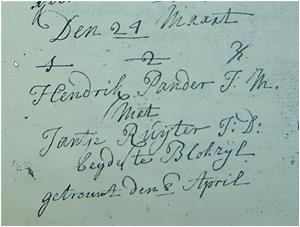 Den 24 Maart
1 2 3/1
Hendrik Pander J. M.
Met
Jantje Ruyter J: D:
beyde te Blokzyl
getrouwt den 8 April